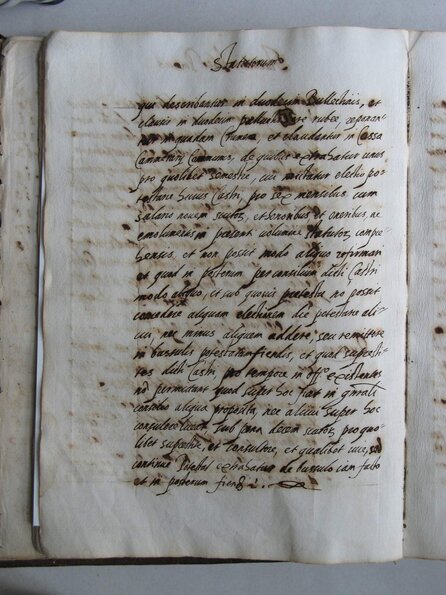 Statutorum
qui describantur in duodecim Bullectinis, et
clausis in duodecim cere rubee, reponant
tur in quadam et claudantur in Cassa
Communis, de quibus extrahatur unus
pro quolibet semestre, cui mittatur electio po=
testarie huius Castri, pro sex mensibus cum
salario novem scutor, et honoribus et oneribus, ac
emolumentis in presenti volumine statutor, compre
hensis, et non possit modo aliquo refirmari
et quod in posterum per consilium dicti Castri
modo aliquo, et sub quovis pretextu no possit
concedere aliquam electionem dce potestarie ali=
cui, nec minus aliquem addere, seu remittere
in bursulis potestatum fiendis, et quod supersti=
tes dicti Castri pro tempore in offo existentes
no permittant quod super hoc fiat in gnrali
consilio aliqua proposita, nec alicui super hoc
consulere liceat sub pena decem scutor, pro quo=
libet superstite, et consultore, et qualibet vice, sed
continue extrahatur de bursulo iam facto
et in posterum fiendo.